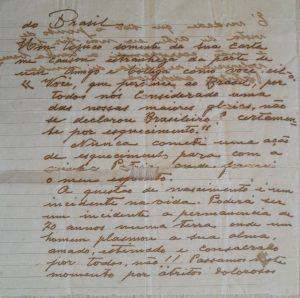 do Brasil
Um topico somente da sua carta
me causou estranheza da parte de
um Amigo e Collega como você, é
"Você, que pertence ao Brasil, por
todos nós considerado uma
das nossas maiores glorias, não
se declarou Brasileiro? certamen-
te por esquecimento."
Nunca cometi uma ação
de esquecimento para com a
minha Patria onde passei
o meu
A questão de nascimento é um
incidente na vida. Poderá ser
um incidente a permanencia de
20 annos numa terra onde um
homem plasmou a sua alma,
amado, estimado e consagrado
por todos, não!! Passamos neste
momento por atritos dolorosos